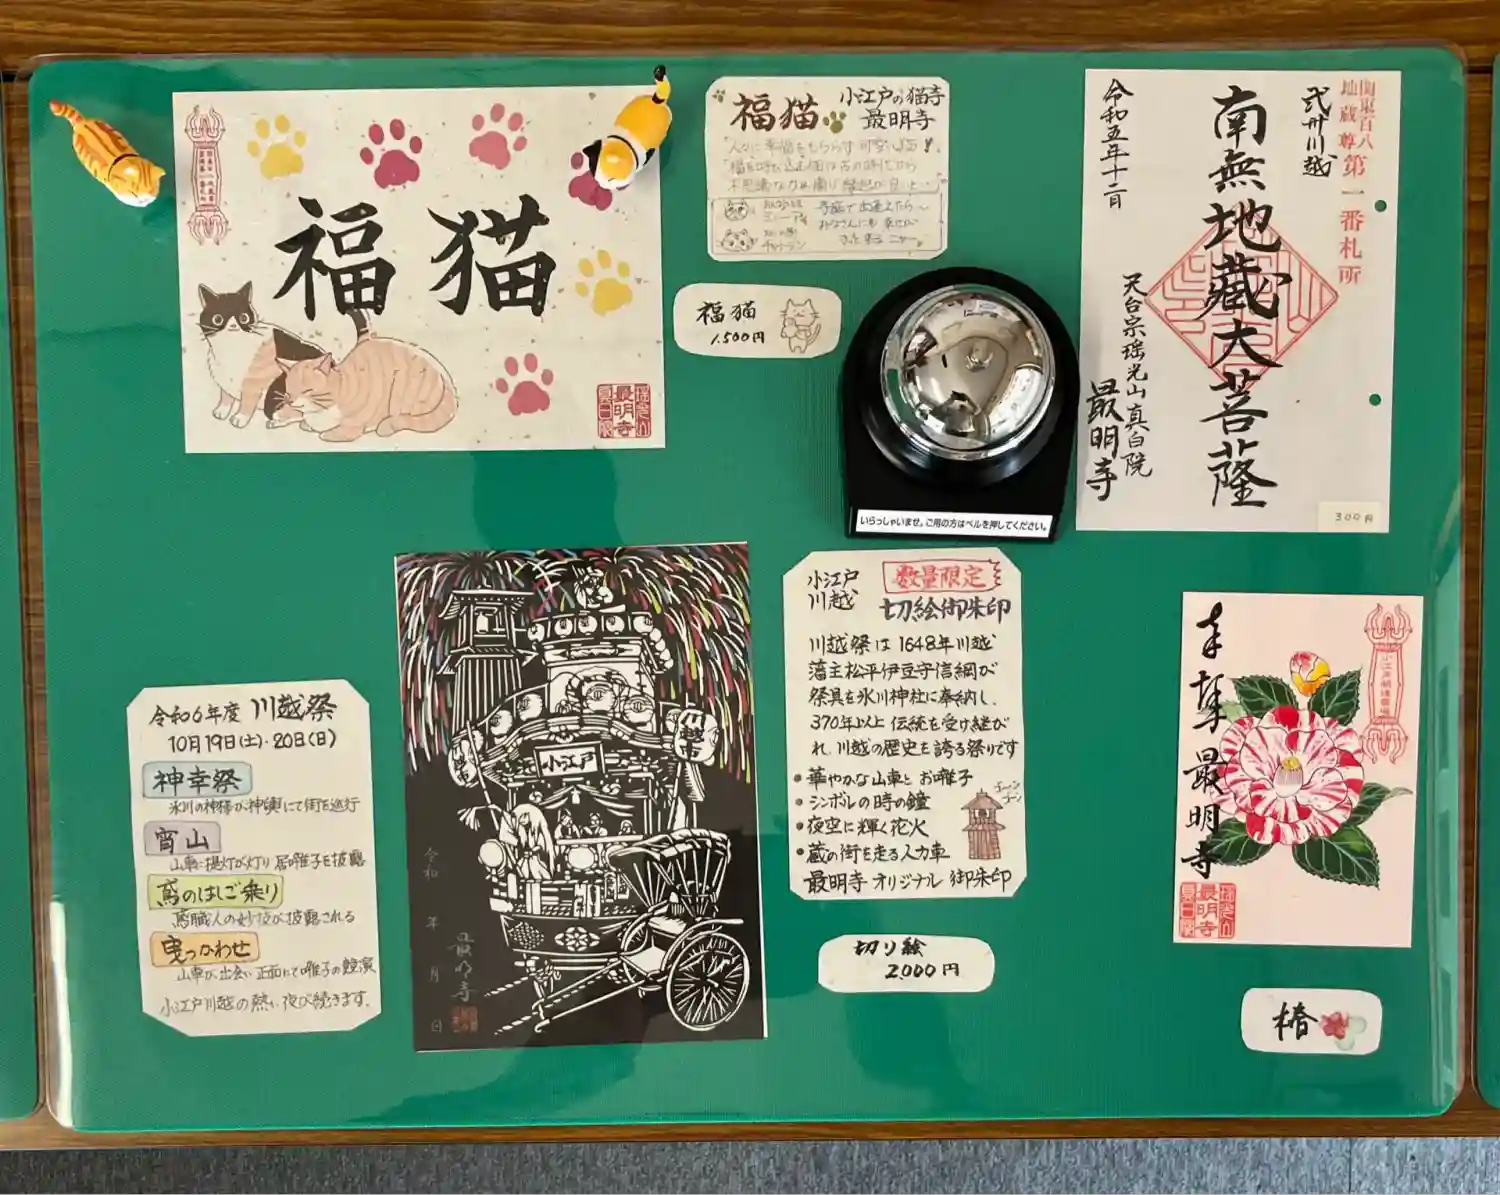 福猫
最明寺
福猫
小江戸の猫寺
最明寺
人々に幸福をもたらす
福猫
1,500円
いらっしゃいませ。ご用の方はベルを押してください。
関東百八
地蔵尊
第一番札所
弐卅川越
南無地蔵大菩薩
天台宗瑶光山真白院
最明寺
令和五年十二月
300円
令和6年度 川越祭
10月19日(土)・20日(日)
神幸祭
氷川の神様が神輿にて街を巡行
宵山
山車に提灯が灯り 居囃子を披露
鳶のはしご乗り
鳶職人の妙技が披露される
曳っかわせ
山車が出会い正面にて囃子の競演
小江戸川越の熱い夜が続きます。
川越市
小江戸
令和 年 月 日
最明寺
小江戸
川越
数量限定
切絵御朱印
川越祭は1648年川越
藩主松平伊豆守信綱が
祭具を氷川神社に奉納し、
370年以上伝統を受け継が
れ、川越の歴史を誇る祭りです
・華やかな山車とお囃子
・シンボルの時の鐘
・夜空に輝く花火
・蔵の街を走る人力車
最明寺オリジナル御朱印
ゴーン
ゴーン
切り絵
2,000円
奉拝
最明寺
最明寺
椿